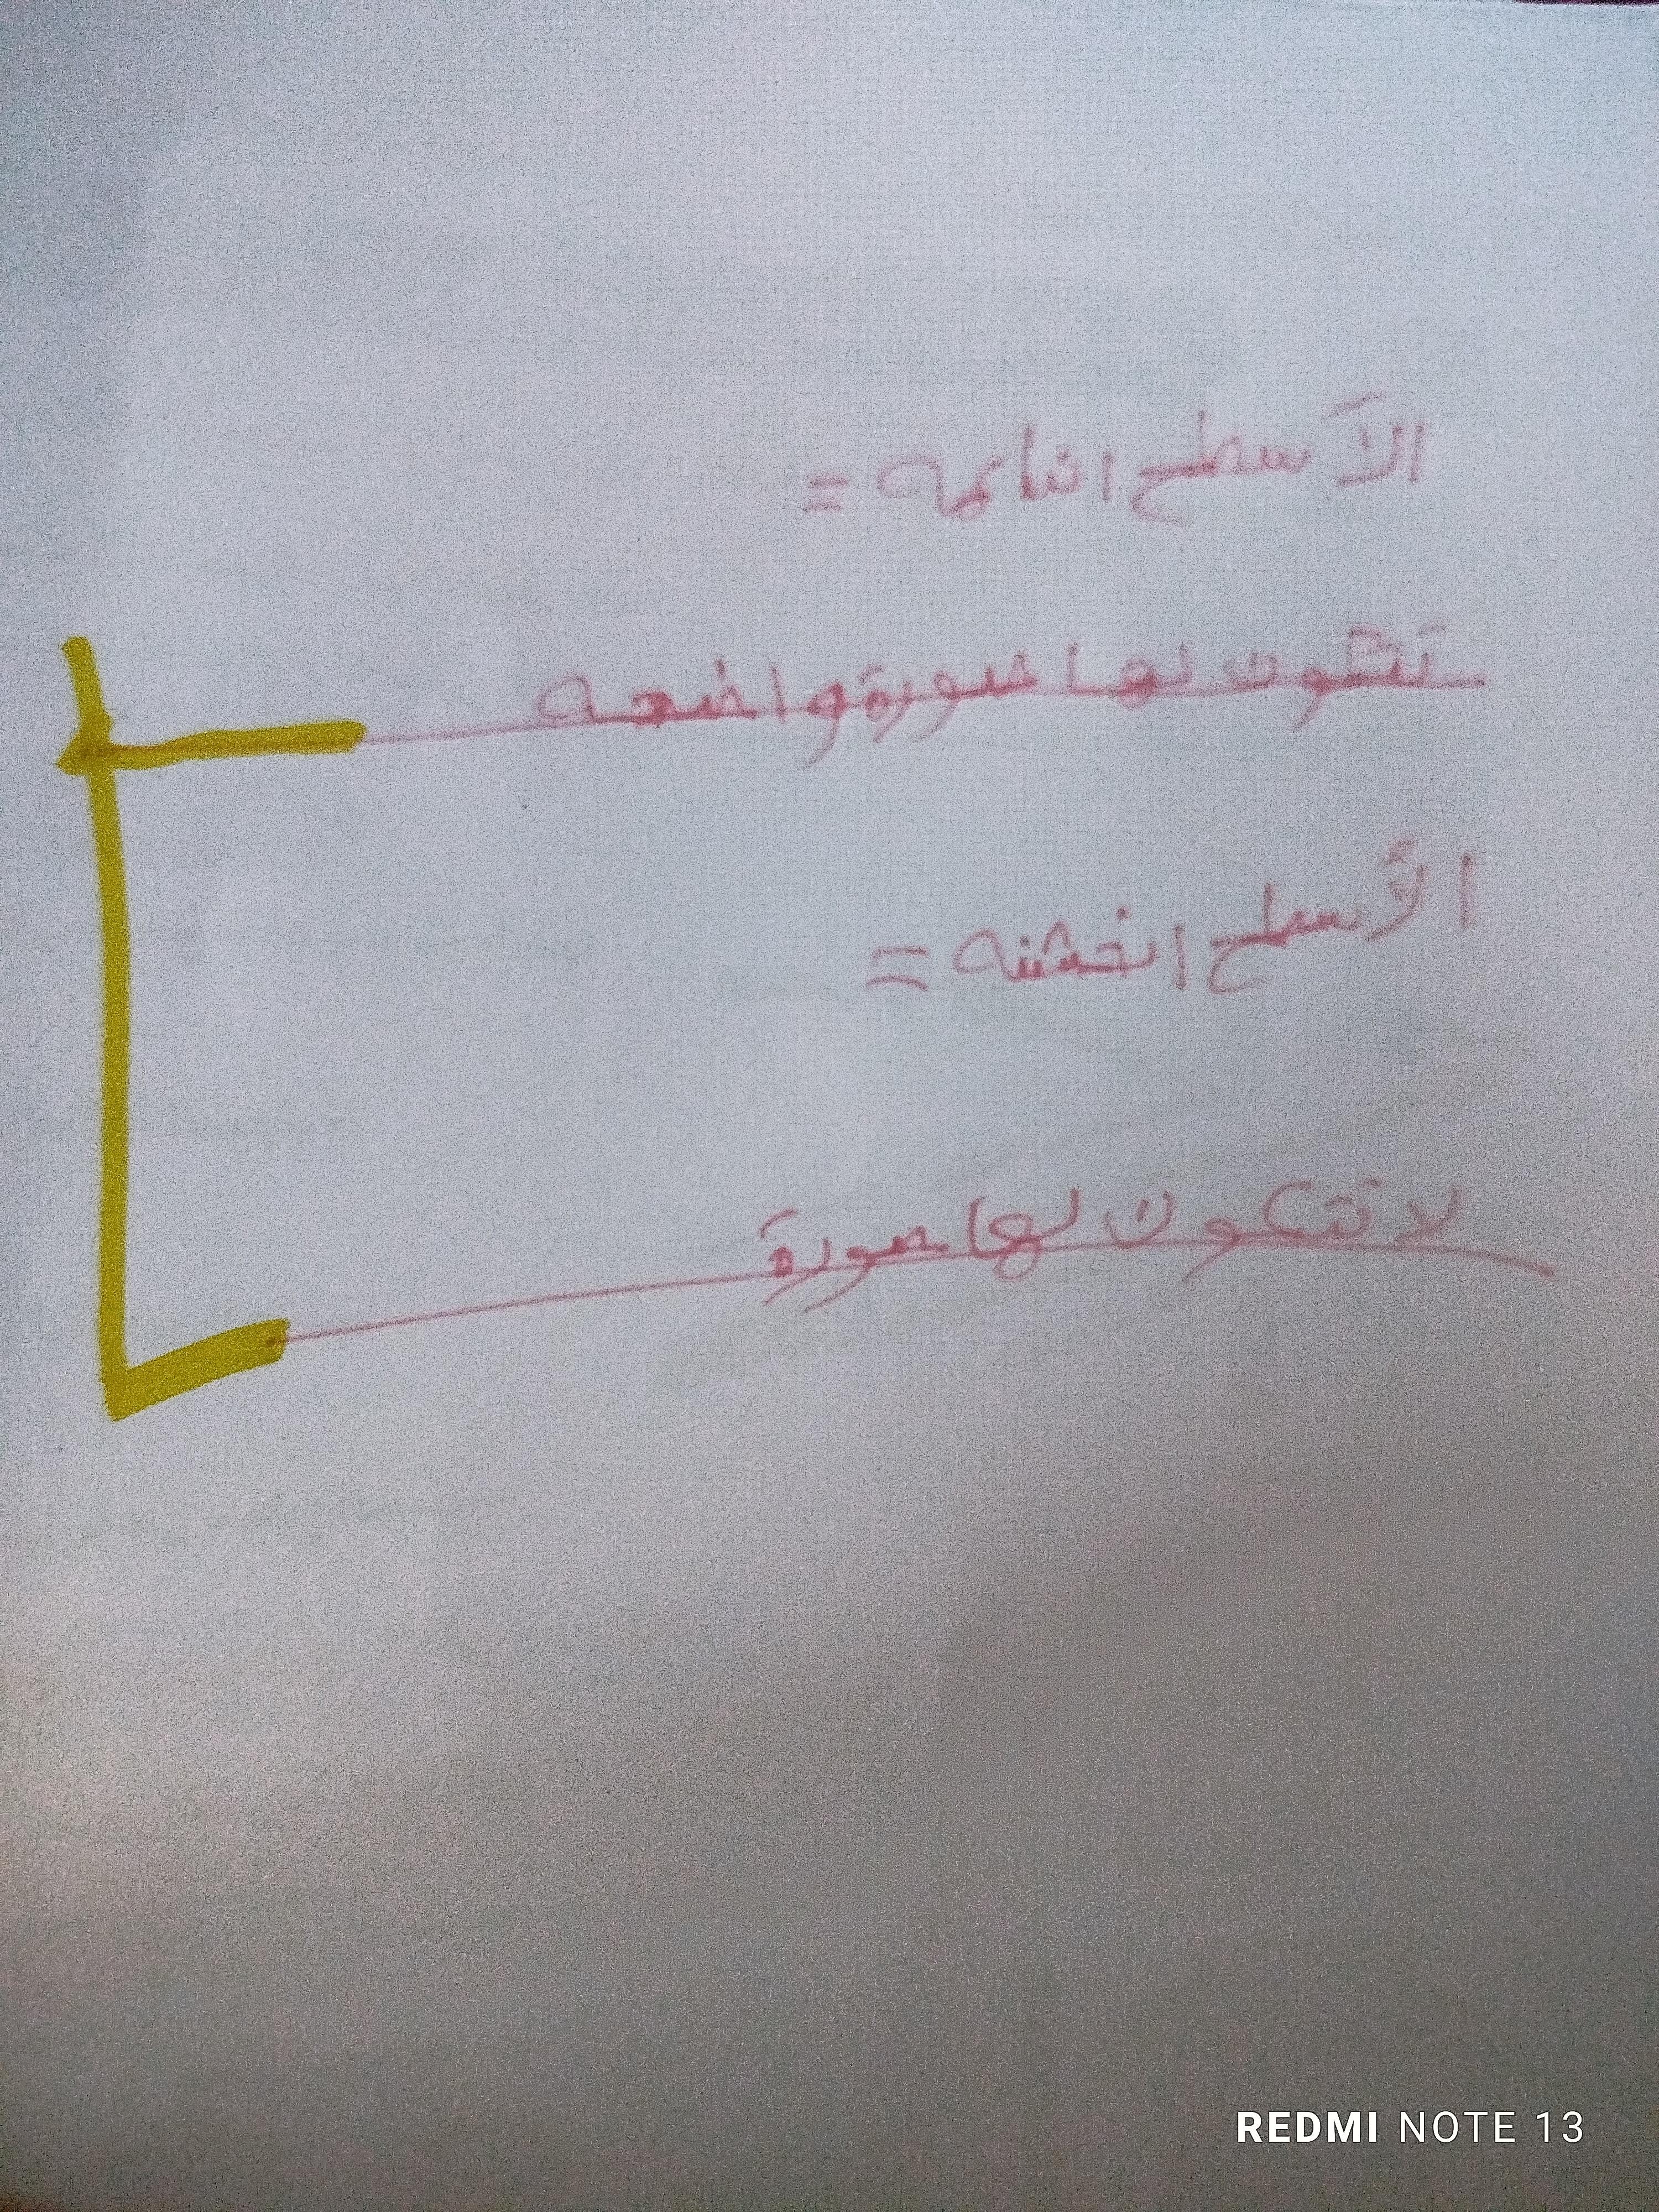 الأسطح الناعمه =
تتكون لها صورة واضحه
الأسطح الخشنه =
لا تتكون لها صورة
REDMI NOTE 13